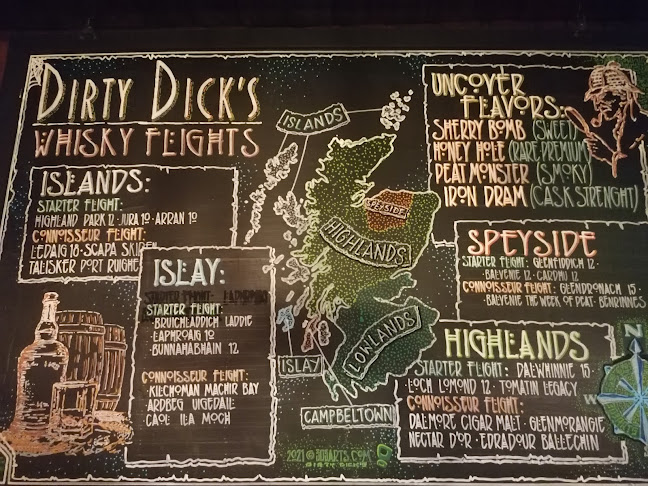 DIRTY DICK'S
WHISKY FLIGHTS
ISLANDS:
STARTER FLIGHT:
HIGHLAND PARK 12 · JURA 10 · ARRAN 10
CONNOISSEUR FLIGHT:
LEDAIG 18 · SCAPA SKIREN
TALISKER PORT RUIGHE
ISLAY:
STARTER FLIGHT:
· BRUICHLADDICH LADDIE
· LAPHROAIG 10
· BUNNAHABHAIN 12
CONNOISSEUR FLIGHT:
· KILCHOMAN MACHIR BAY
ARDBEG UIGEDAIL
CAOL ILA MOCH
ISLANDS
SPEYSIDE
HIGHLANDS
LOWLANDS
ISLAY
CAMPBELTOWN
2021 ©
DIRTY DICK'S
UNCOVER
FLAVORS:
SHERRY BOMB (SWEET)
HONEY HOLE (RARE PREMIUM)
PEAT MONSTER (SMOKY)
IRON DRAM (CASK STRENGHT)
SPEYSIDE
STARTER FLIGHT: GLENFIDDICH 12 ·
BALVENIE 12 · CARDHU 12
CONNOISSEUR FLIGHT: GLENDRONACH 15 ·
BALVENIE THE WEEK OF PEAT · BENRINNES
HIGHLANDS
STARTER FLIGHT: DALWHINNIE 15 ·
LOCH LOMOND 12 · TOMATIN LEGACY
CONNOISSEUR FLIGHT:
DALMORE CIGAR MALT · GLENMORANGIE
NECTAR D'OR · EDRADOUR BALLECHIN
N
W